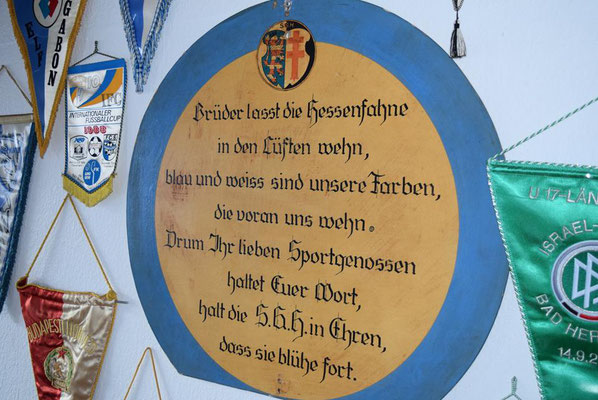 ELF
GABON
IFC
INTERNATIONALER
FUSSBALLCUP
SGH
Brüder lasst die Hessenfahne
in den Lüften wehn,
blau und weiss sind unsere Farben,
die voran uns wehn.
Drum Ihr lieben Sportgenossen
haltet Euer Wort,
halt die S.G.H. in Ehren,
dass sie blühe fort.
BUDAPEST
U 17-LÄN
ISRAEL-
BAD HER
14.9.2